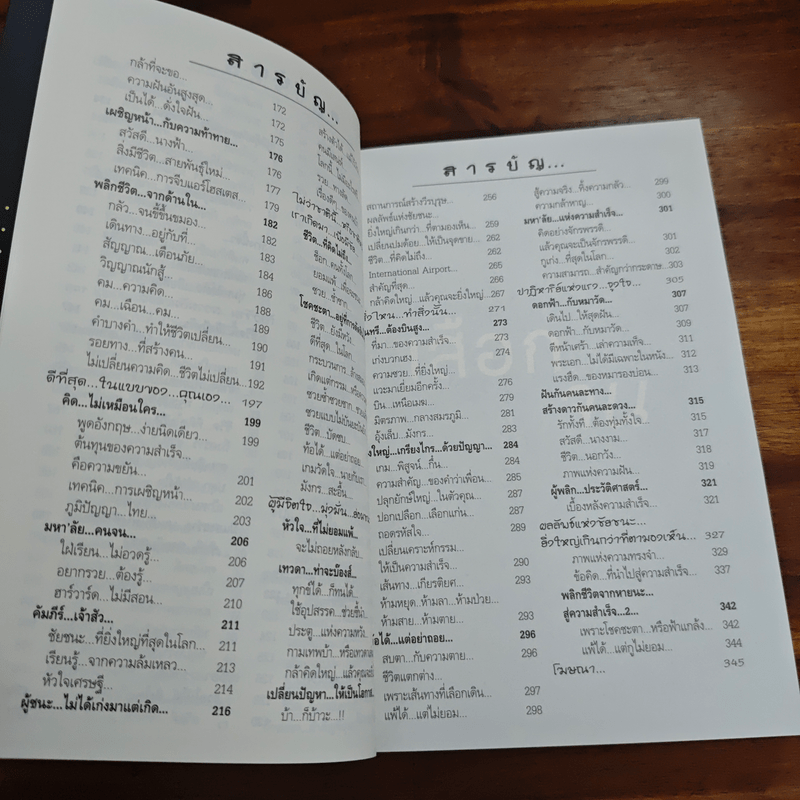 สารบัญ...
กล้าที่จะขอ...
ความฝันอันสูงสุด... 172
เป็นได้...ดั่งใจฝัน... 172
เผชิญหน้า...กับความท้าทาย... 175
สวัสดี...นางฟ้า... 176
สิ่งมีชีวิต...สายพันธุ์ใหม่... 177
เทคนิค...การจีบแอร์โฮสเตส... 179
พลิกชีวิต...จากด้านใน...
กลัว...จนขี้ขึ้นขมอง... 182
เดินทาง...อยู่กับที่... 182
สัญญาณ...เตือนภัย... 184
วิญญาณนักสู้... 186
คม...ความคิด... 187
คม...เฉือน...คม... 188
คำบางคำ...ทำให้ชีวิตเปลี่ยน... 189
รอยทาง...ที่สร้างคน... 190
ไม่เปลี่ยนความคิด...ชีวิตไม่เปลี่ยน... 192
ดีที่สุด...ในแบบของ...คุณเอง... 197
คิด...ไม่เหมือนใคร... 199
พูดอังกฤษ...ง่ายนิดเดียว... 199
ต้นทุนของความสำเร็จ...
คือความขยัน... 201
เทคนิค...การเผชิญหน้า... 202
ภูมิปัญญา...ไทย... 203
มหา'ลัย...คนจน... 206
ใฝ่เรียน...ไม่อวดรู้... 206
อยากรวย...ต้องรู้... 207
ฮาร์วาร์ด...ไม่มีสอน... 210
คัมภีร์...เจ้าสัว... 211
ชัยชนะ...ที่ยิ่งใหญ่ที่สุดในโลก... 211
เรียนรู้...จากความล้มเหลว... 213
หัวใจเศรษฐี... 214
ผู้ชนะ...ไม่ได้เก่งมาแต่เกิด... 216
สร้างตัวได้
คนมีเสน่ห์
โลกนี้
รวย...ทางลัด
ไม่ว่าชาตินี้
เราเกิดมา...เพื่อ
ชีวิต...ที่คิดไม่ถึง
ช็อก...คนทั้งโลก
ยอมแพ้...เพื่อ
ซวย...ซ้ำซาก
โชคชะตา...อยู่ที่การ
ชีวิต...ยังมีหวัง
ดีที่สุด...ในโลก
กระบวนการ...ล้าง
เกิดแต่กรรม...หรือ
ซวยซ้ำซวยซาก
ซวยแบบไม่บันยะ
ชีวิต...บัดซบ...
ท้อได้...แต่อย่าถอย
เกมวัดใจ...นายกับ
มังกร...สะอื้น...
ผู้มีจิตใจ...มุ่งมั่น...
หัวใจ...ที่ไม่ยอมแพ้...
จะไม่ถอยหลังกลับ
เทวดา...ท่าจะบ๊องส์...
ทุกข์ได้...ก็ทนได้...
ใช้อุปสรรค...ช่วยชี้นำ
ประตู...แห่งความหวัง
กามเทพบ้า...หรือเทวดา
กล้าคิดใหญ่...แล้วคุณจะ
เปลี่ยนปัญหา...ให้เป็นโอกาส...
บ้า...ก็บ้าวะ...!!
สารบัญ...
สถานการณ์สร้างวีรบุรุษ... 256
ผลลัพธ์แห่งชัยชนะ...
ยิ่งใหญ่เกินกว่า...ที่ตามองเห็น... 259
เปลี่ยนปมด้อย...ให้เป็นจุดขาย... 259
ชีวิต...ที่คิดไม่ถึง... 262
International Airport... 265
สำคัญที่สุด... 266
กล้าคิดใหญ่...แล้วคุณจะยิ่งใหญ่... 267
ไหน...ทำสิ่งนั้น... 271
นทรี...ต้องบินสูง... 273
ที่มา...ของความสำเร็จ... 273
เก่งบวกเฮง... 274
ความซวย...ที่ยิ่งใหญ่...
แวะมาเยี่ยมอีกครั้ง... 276
บิน...เหนือเมฆ... 279
มิตรภาพ...กลางสมรภูมิ... 281
อุ้งเล็บ...มังกร... 282
งใหญ่...เกรียงไกร...ด้วยปัญญา... 284
เกม...พิสูจน์...กึ๋น... 285
ความสำคัญ...ของคำว่าเพื่อน... 285
ปลุกยักษ์ใหญ่...ในตัวคุณ... 287
ปอกเปลือก...เลือกแก่น... 287
ถอดรหัสใจ... 289
เปลี่ยนเคราะห์กรรม...
ให้เป็นความสำเร็จ... 290
เส้นทาง...เกียรติยศ... 291
ห้ามหยุด..ห้ามลา...ห้ามป่วย...
ห้ามสาย...ห้ามตาย... 293
อได้...แต่อย่าถอย... 296
สบตา...กับความตาย... 296
ชีวิตแตกต่าง...
เพราะเส้นทางที่เลือกเดิน... 297
แพ้ได้...แต่ไม่ยอม... 298
สู้ความจริง...ทิ้งความกลัว... 299
ความกล้าหาญ... 300
มหา'ลัย...แห่งความสำเร็จ... 301
คิดอย่างจักรพรรดิ...
แล้วคุณจะเป็นจักรพรรดิ... 301
กูเก่ง...ที่สุดในโลก... 302
ความสามารถ...สำคัญกว่ากระดาษ... 303
ปาฏิหาริย์แห่งแรง...จูงใจ... 305
ดอกฟ้า...กับหมาวัด... 307
เดินไป...ให้สุดฝัน... 307
ดอกฟ้า...กับหมาวัด... 309
ตีหน้าเศร้า...เล่าความเท็จ... 311
พระเอก...ไม่ได้มีเฉพาะในหนัง... 312
แรงฮึด...ของหมาจรงบ่อน... 313
ฝันกันคนละทาง...
สร้างดาวกันคนละดวง... 315
รักทั้งที...ต้องทุ่มทั้งใจ... 315
สวัสดี...นางงาม... 317
ชีวิต...นอกวัง... 318
ภาพแห่งความฝัน... 319
ผู้พลิก...ประวัติศาสตร์... 321
เบื้องหลังความสำเร็จ... 321
ผลลัพธ์แห่งชัยชนะ...
ยิ่งใหญ่เกินกว่าที่ตามองเห็น... 327
ภาพแห่งความทรงจำ... 329
ข้อคิด...ที่นำไปสู่ความสำเร็จ... 337
พลิกชีวิตจากหายนะ...
สู่ความสำเร็จ...2... 342
เพราะโชคชะตา...หรือฟ้าแกล้ง... 342
แพ้ได้...แต่กูไม่ยอม... 344
โฆษณา... 345